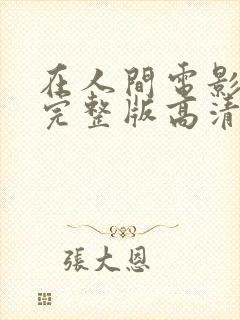 在人間電影
完整版高清
張大恩